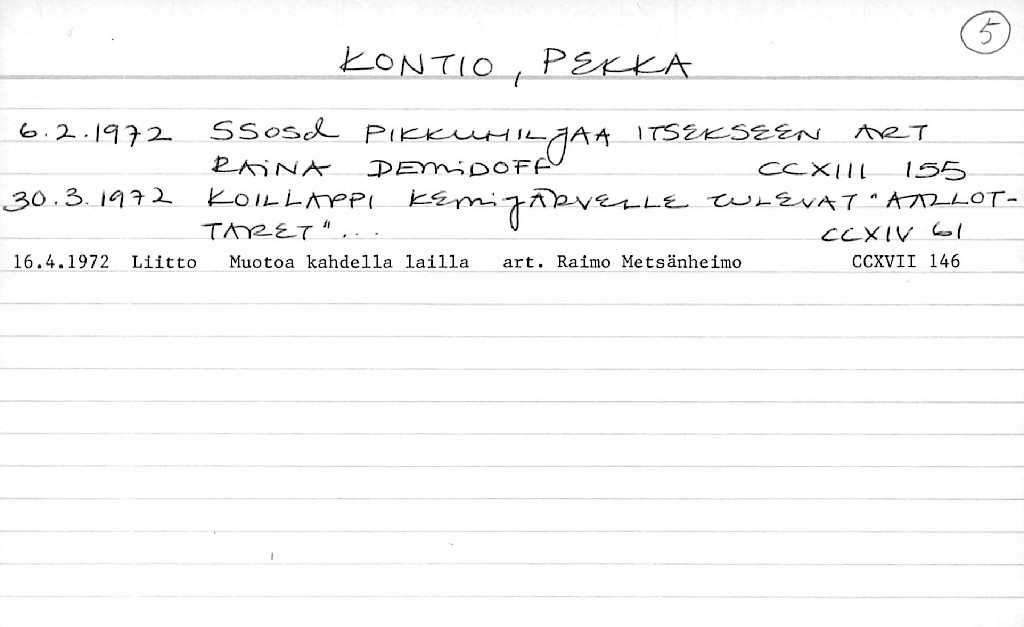 5
KONTIO, PEKKA
6.2.1972 SSosd PIKKUHILJAA ITSEKSEEN ART
RAINA DEMIDOFF CCXIII 155
30.3.1972 KOILLAPPI KEMIJÄRVELLE TULEVAT "AALLOT-
TARET"... CCXIV 61
16.4.1972 Liitto Muotoa kahdella lailla art. Raimo Metsänheimo CCXVII 146